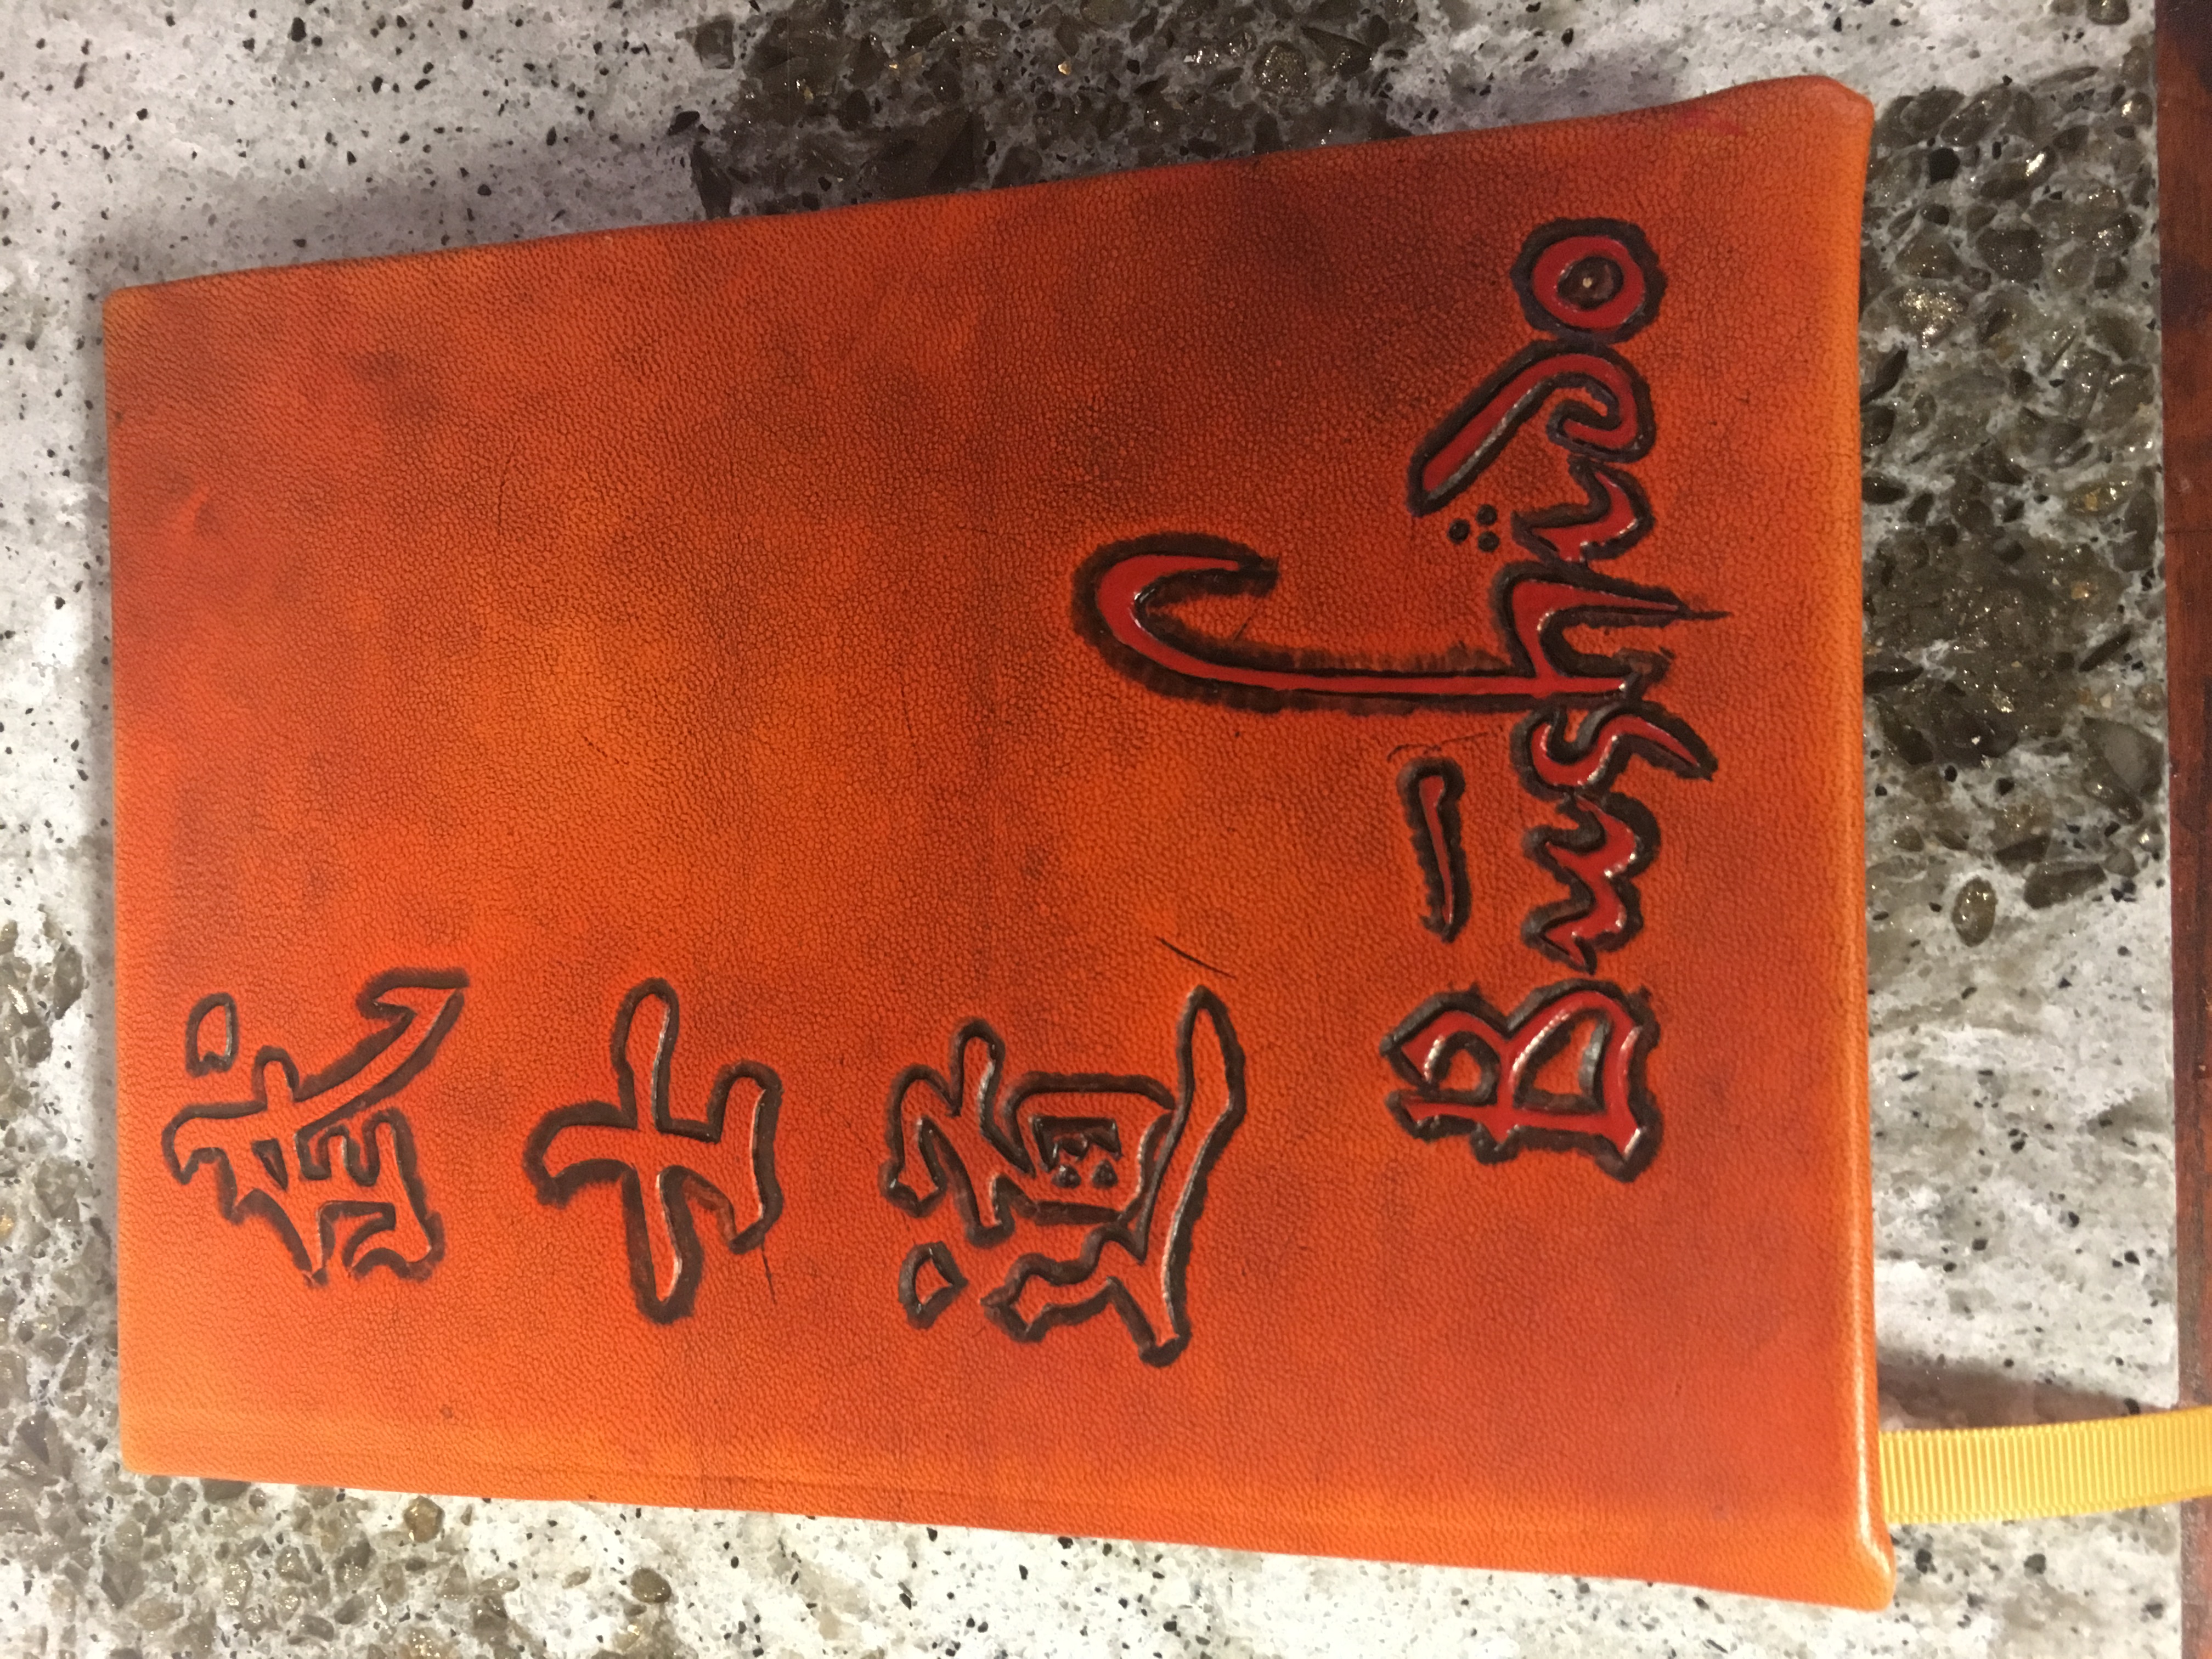 武士道
Būshido